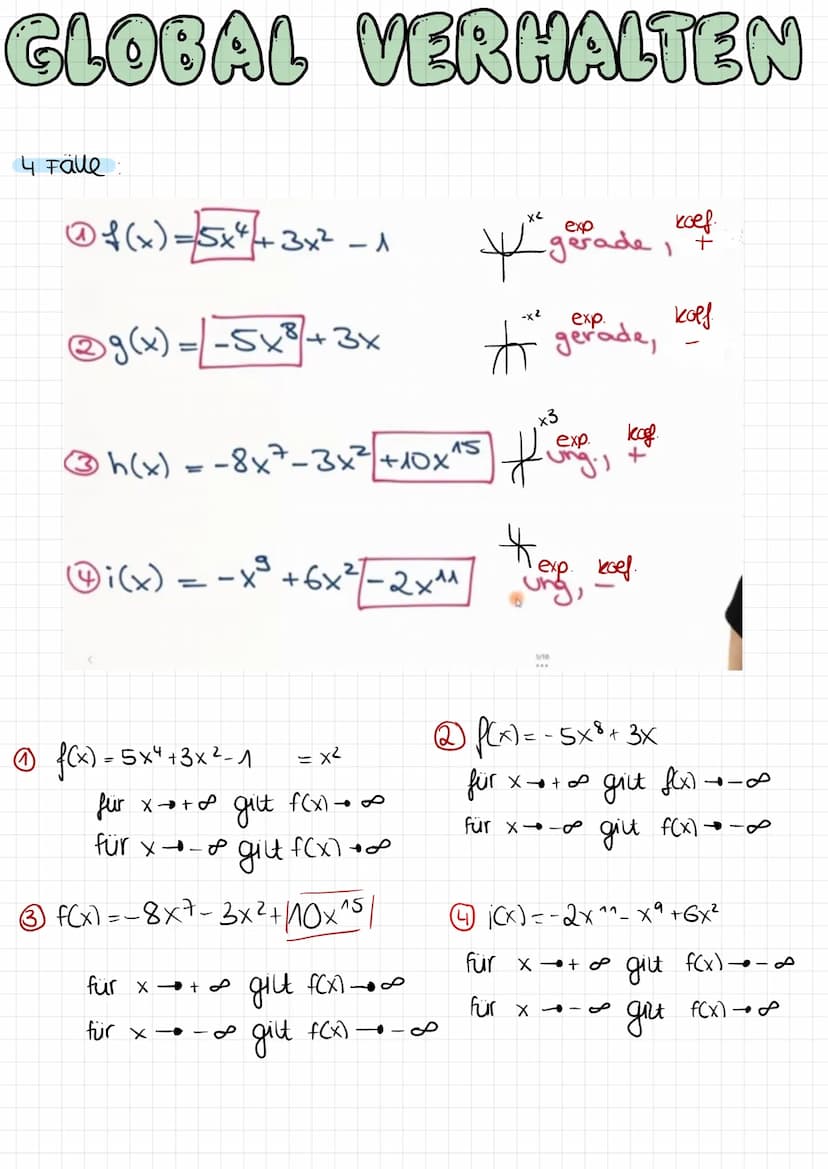 GLOBAL VERHALTEN
4 Fälle:
① f(x) = 5x⁴ + 3x² - 1
x² exp koef.
gerade, +
② g(x) = -5x⁸ + 3x
-x² exp. koef.
gerade, -
③ h(x) = -8x⁷ - 3x² +10x¹⁵
x³ exp. koef.
ung., +
④ i(x) = -x⁹ + 6x² - 2x¹¹
exp. koef.
ung, -
5/10
① f(x) = 5x⁴ + 3x² - 1 = x²
für x → + ∞ gilt f(x) → ∞
für x → - ∞ gilt f(x) → ∞
② f(x) = - 5x⁸ + 3x
für x → + ∞ gilt f(x) → - ∞
für x → - ∞ gilt f(x) → - ∞
③ f(x) = - 8x⁷ - 3x² + 10x¹⁵
für x → + ∞ gilt f(x) → ∞
für x → - ∞ gilt f(x) → - ∞
④ i(x) = - 2x¹¹ - x⁹ + 6x²
für x → + ∞ gilt f(x) → - ∞
für x → - ∞ gilt f(x) → ∞